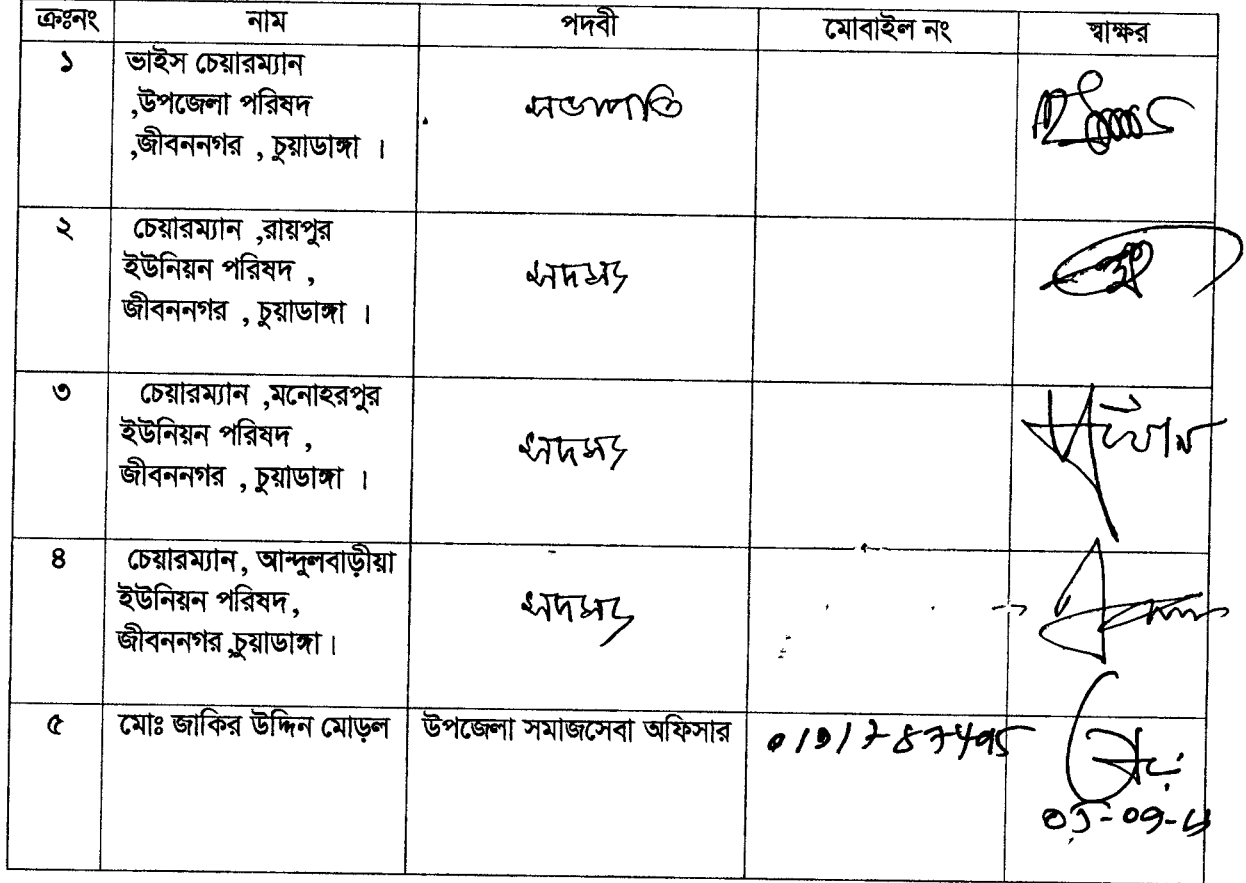 ক্রঃনং নাম পদবী মোবাইল নং স্বাক্ষর
১ ভাইস চেয়ারম্যান
,উপজেলা পরিষদ
,জীবননগর , চুয়াডাঙ্গা ।
সভাপতি
২ চেয়ারম্যান ,রায়পুর
ইউনিয়ন পরিষদ ,
জীবননগর , চুয়াডাঙ্গা ।
সদস্য
৩ চেয়ারম্যান ,মনোহরপুর
ইউনিয়ন পরিষদ ,
জীবননগর , চুয়াডাঙ্গা ।
সদস্য
৪ চেয়ারম্যান, আন্দুলবাড়ীয়া
ইউনিয়ন পরিষদ,
জীবননগর,চুয়াডাঙ্গা।
সদস্য
৫ মোঃ জাকির উদ্দিন মোড়ল উপজেলা সমাজসেবা অফিসার